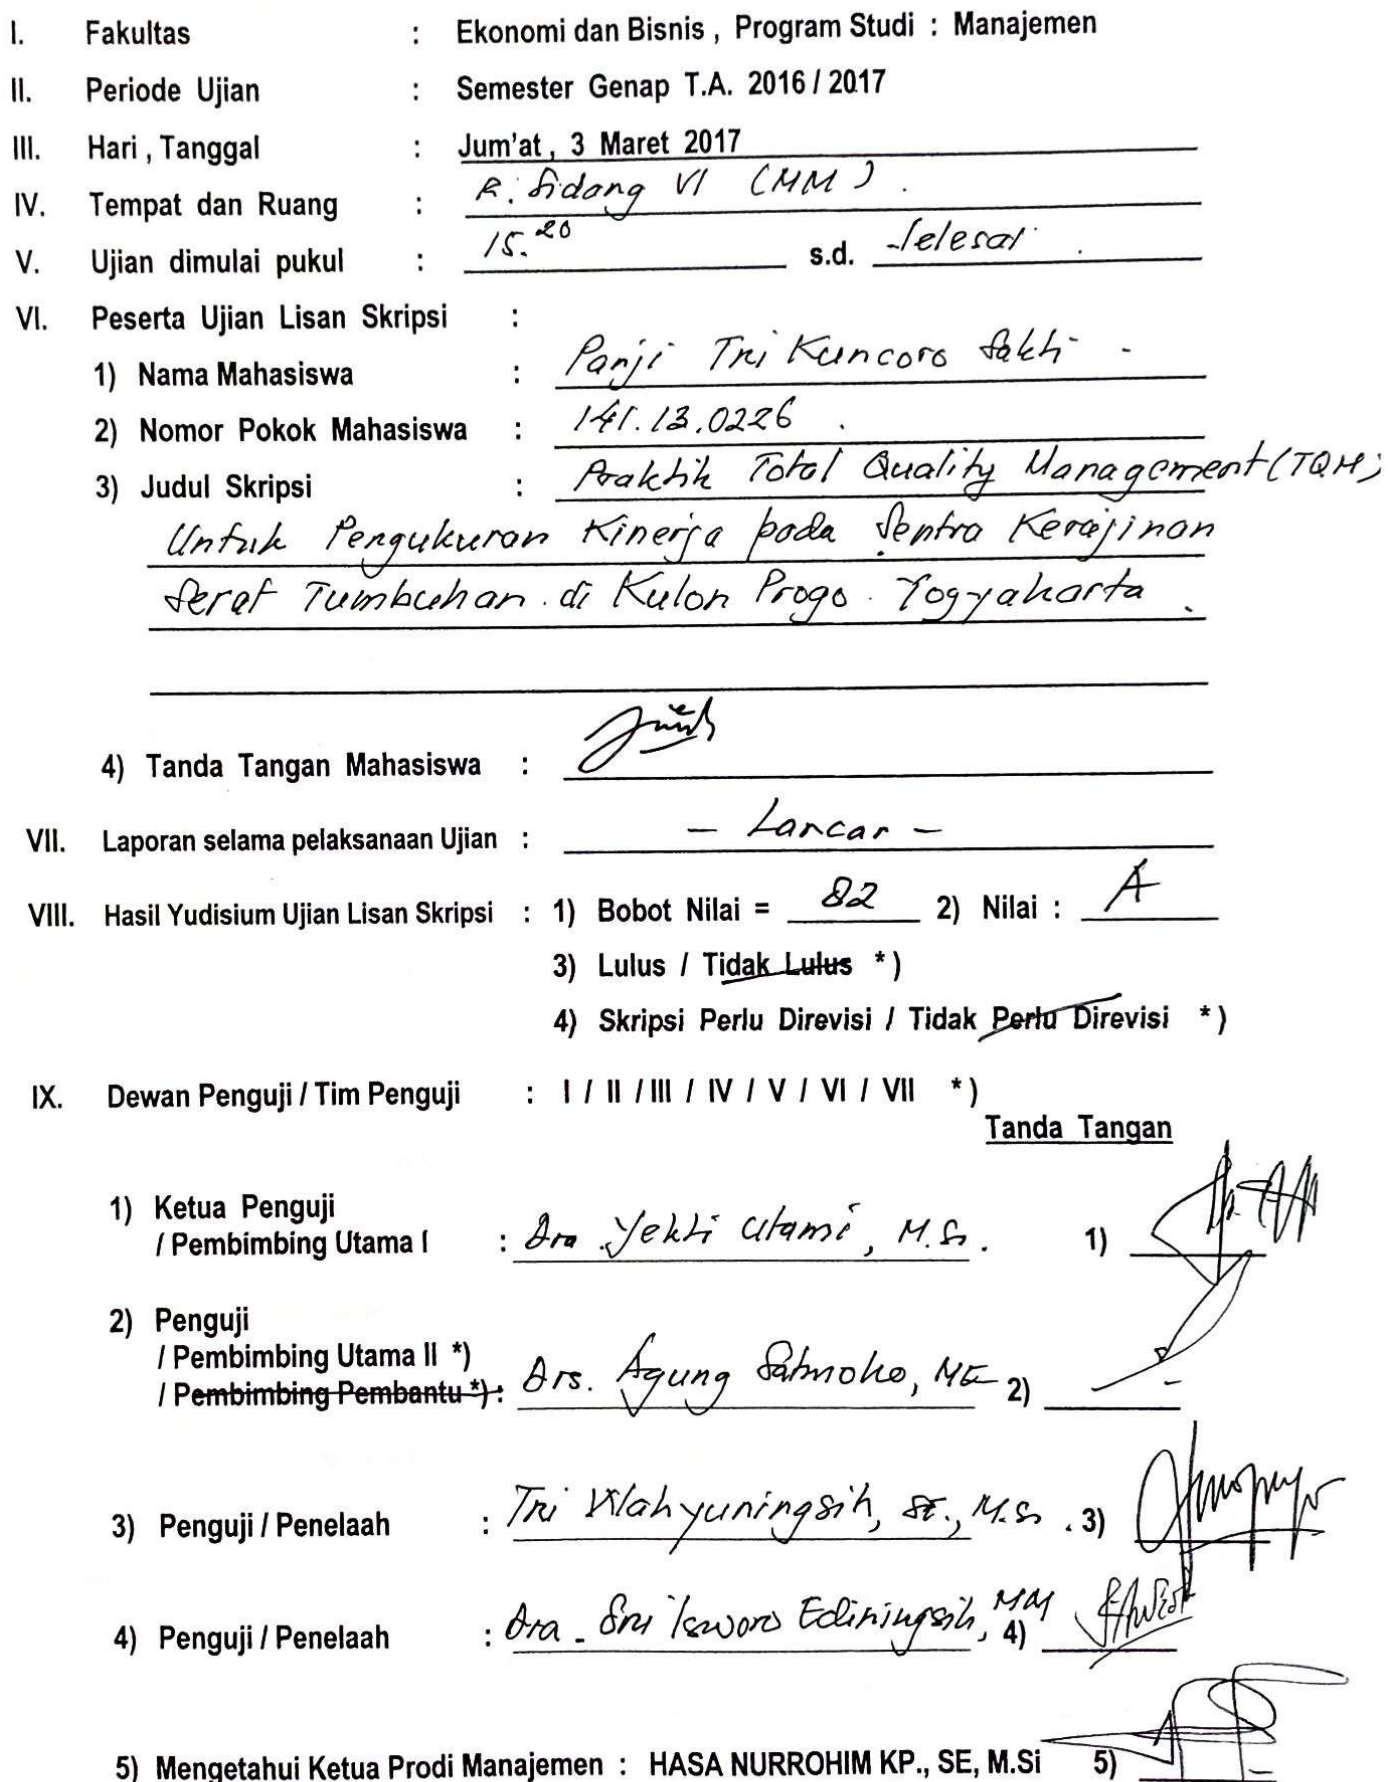 I. Fakultas : Ekonomi dan Bisnis , Program Studi : Manajemen
II. Periode Ujian : Semester Genap T.A. 2016 / 2017
III. Hari , Tanggal : Jum'at , 3 Maret 2017
IV. Tempat dan Ruang : R. Sidang VI (MM) .
V. Ujian dimulai pukul : 15.20 s.d. Selesai .
VI. Peserta Ujian Lisan Skripsi :
1) Nama Mahasiswa : Panji Tri Kuncoro Sakti -
2) Nomor Pokok Mahasiswa : 141.13.0226 .
3) Judul Skripsi : Praktik Total Quality Management (TQM)
Untuk Pengukuran Kinerja pada Sentra Kerajinan
Serat Tumbuhan di Kulon Progo . Yogyakarta .
4) Tanda Tangan Mahasiswa :
VII. Laporan selama pelaksanaan Ujian : - Lancar -
VIII. Hasil Yudisium Ujian Lisan Skripsi : 1) Bobot Nilai = 82 2) Nilai : A
3) Lulus / Tidak Lulus *)
4) Skripsi Perlu Direvisi / Tidak Perlu Direvisi *)
IX. Dewan Penguji / Tim Penguji : I / II / III / IV / V / VI / VII *)
Tanda Tangan
1) Ketua Penguji
/ Pembimbing Utama I : Dra. Yekti Utami, M.Si. 1)
2) Penguji
/ Pembimbing Utama II *)
/ Pembimbing Pembantu *) : Drs. Agung Satmoko, ME 2)
3) Penguji / Penelaah : Tri Wahyuningsih, SE., M.Si . 3)
4) Penguji / Penelaah : Dra. Sri Isworo Ediningsih, MM 4)
5) Mengetahui Ketua Prodi Manajemen : HASA NURROHIM KP., SE, M.Si 5)